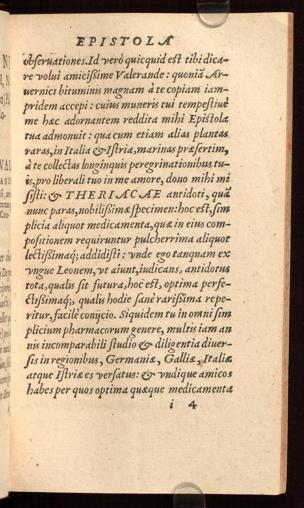 EPISTOLA
obseruationes. Id verò quicquid est tibi dica-
re volui amicißime Valerande: quoniã Ar-
uernici bituminis magnam à te copiam iam-
pridem accepi: cuius muneris tui tempestiuè
me hæc adornantem reddita mihi Epistola
tua admonuit: qua cum etiam alias plantas
raras, in Italia & Istria, marinas præsertim,
à te collectas longinquis peregrinationibus tu-
is, pro liberali tuo in me amore, dono mihi mi
sisti: & THERIACAE antidoti, quã
nunc paras, nobilißimæ specimen: hoc est, sim
plicia aliquot medicamenta, quæ in eius com-
positionem requiruntur pulcherrima aliquot
lectißimaq́;, addidisti: vnde ego tanquam ex
vngue Leonem, vt aiunt, iudicans, antidotus
tota, qualis sit futura, hoc est, optima perfe-
ctißimaq́;, qualis hodie sanè rarißima repe-
ritur, facilè conijcio. Siquidem tu in omni sim
plicium pharmacorum genere, multis iam an
nis incomparabili studio & diligentia diuer-
sis in regionibus, Germaniæ, Galliæ, Italiæ
atque Istriæ es versatus: & vndique amicos
habes per quos optima quæque medicamenta
i 4